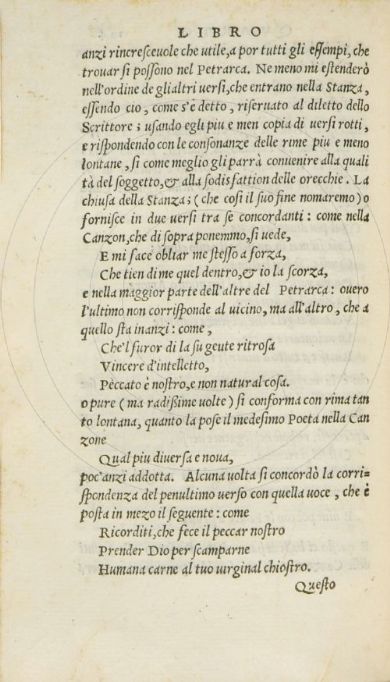 LIBRO
anzi rincresceuole che utile, a por tutti gli essempi, che
trouar si possono nel Petrarca. Ne meno mi estenderò
nell'ordine de gli altri uersi, che entrano nella Stanza,
essendo cio, come s'è detto, riseruato al diletto dello
Scrittore; usando egli piu e men copia di uersi rotti,
e rispondendo con le consonanze delle rime piu e meno
lontane, si come meglio gli parrà conuenire alla quali
tà del soggetto, & alla sodisfattion delle orecchie. La
chiusa della Stanza; (che cosi il suo fine nomaremo) o
fornisce in due uersi tra se concordanti: come nella
Canzon, che di sopra ponemmo, si uede,
E mi face obliar me stesso a forza,
Che tien di me quel dentro, & io la scorza,
e nella maggior parte dell'altre del Petrarca: ouero
l'ultimo non corrisponde al uicino, ma all'altro, che a
quello sta inanzi: come,
Che'l furor di la su gente ritrosa
Vincere d'intelletto,
Peccato è nostro, e non natural cosa.
o pure (ma radissime uolte) si conforma con rima tan
to lontana, quanto la pose il medesimo Poeta nella Can
zone
Qual piu diuersa e noua,
poc'anzi addotta. Alcuna uolta si concordò la corri=
spondenza del penultimo uerso con quella uoce, che è
posta in mezo il seguente: come
Ricorditi, che fece il peccar nostro
Prender Dio per scamparne
Humana carne al tuo uirginal chiostro.
Questo